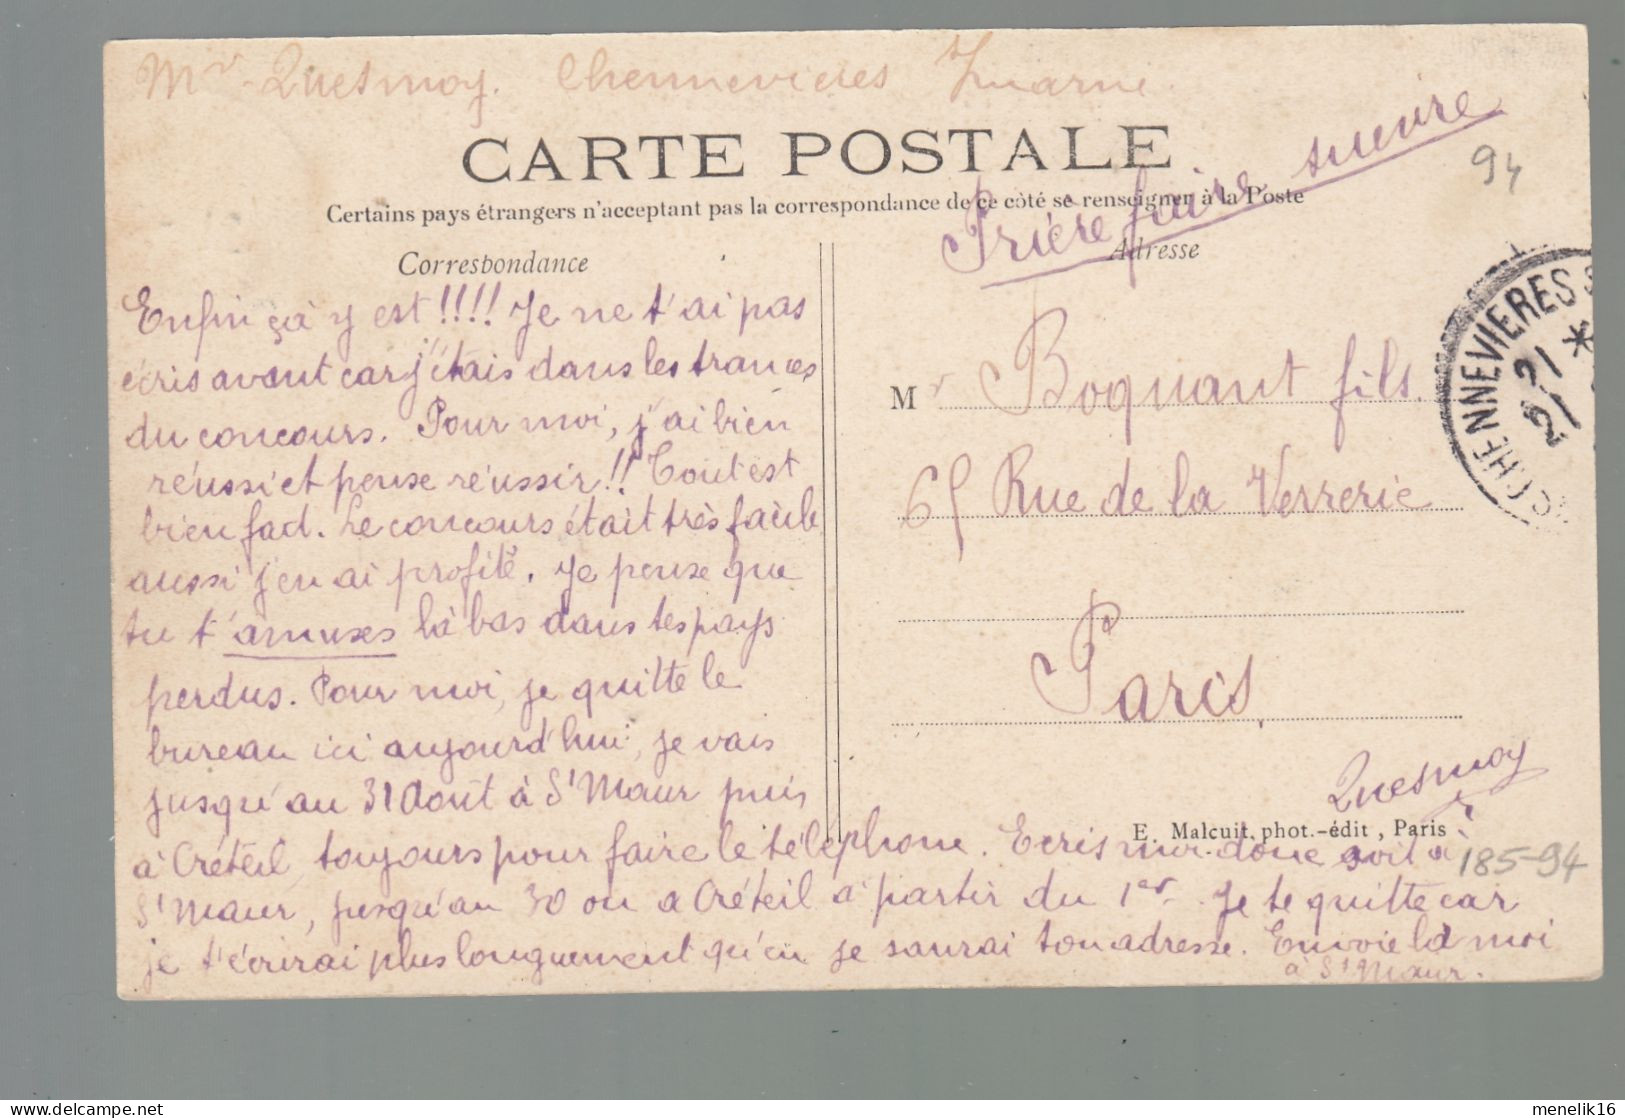 Mr Quesmoy. Chennevieres s/marne.
CARTE POSTALE
Certains pays étrangers n'acceptant pas la correspondance de ce côté se renseigner à la Poste
Prière faire suivre
94
Correspondance
Enfin çà y est !!!! Je ne t'ai pas
écris avant car j'étais dans les trances
du concours. Pour moi, j'ai bien
réussi et pense réussir!! Tout est
bien fad. Le concours était très facile
aussi j'en ai profité. Je pense que
tu t'amuses là bas dans tes pays
perdus. Pour moi, je quitte le
bureau ici aujourd'hui, je vais
jusqu'au 31 Août à St Maur puis
à Créteil, toujours pour faire le téléphone. Ecris moi donc soit à
St Maur, jusqu'au 30 ou a Créteil à partir du 1er. Je te quitte car
je t'écrirai plus longuement qu'en je saurai ton adresse. Envoie là moi
à St Maur.
Quesmoy
Adresse
Mr Boquant fils.
65 Rue de la Verrerie
Paris
E. Malcuit, phot.-édit, Paris
185-94
CHENNEVIERES S
21
21
menelik16